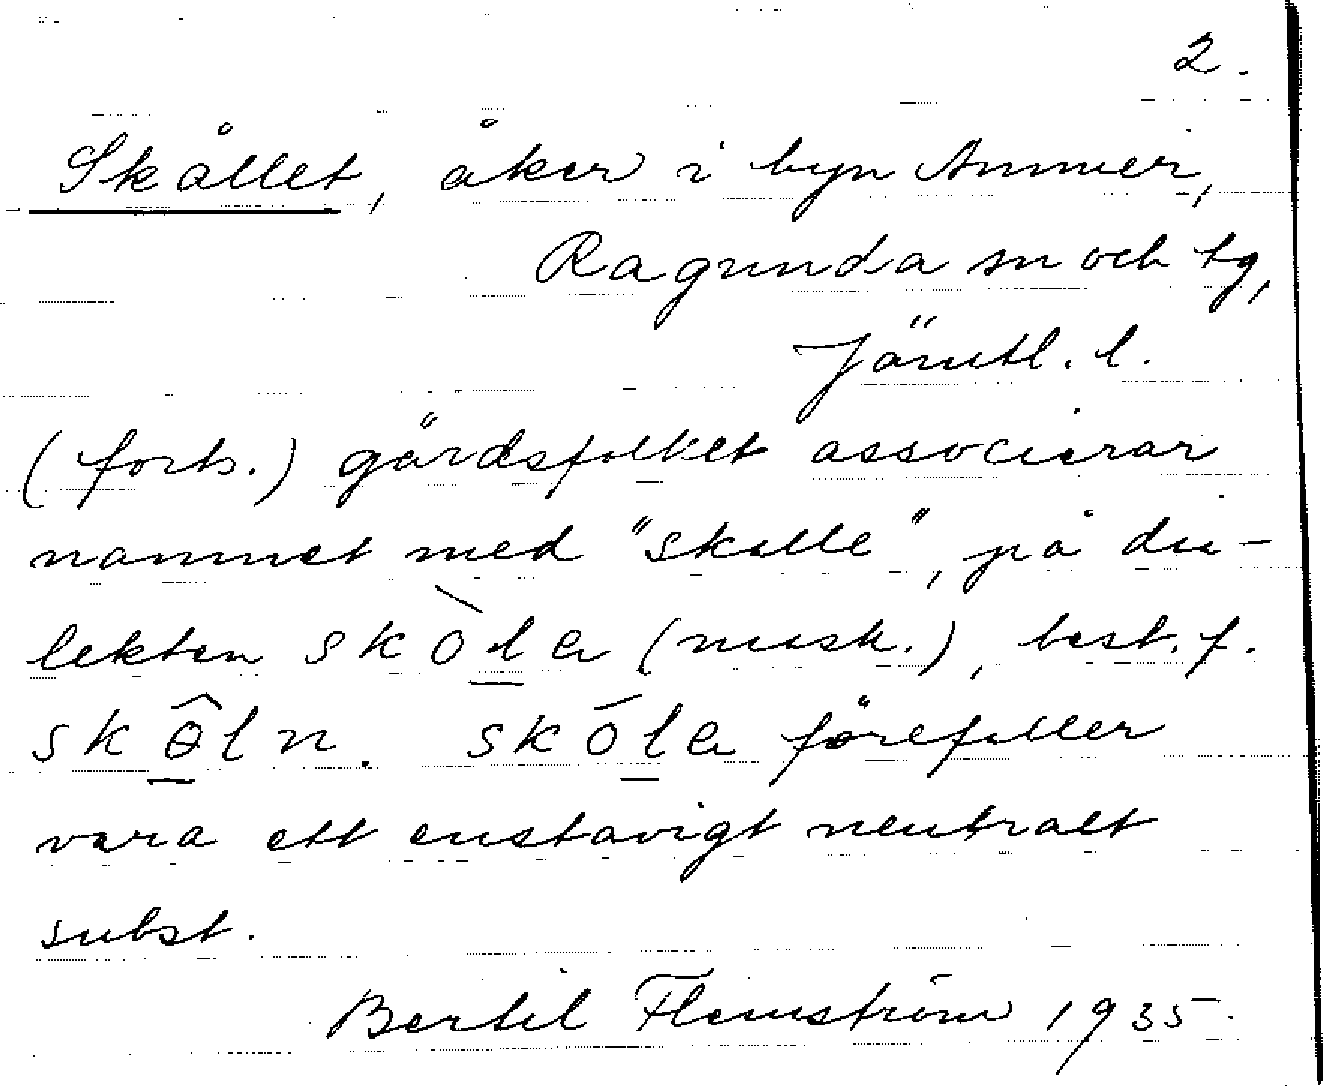 2.
Skållet, åker i byn Ammer,
Ragunda sn och tg,
Jämtl. l.
(forts.) gårdsfolket associerar
namnet med "skalle", på dia-
lekten skòla (mask.), best. f.
skôln. skóla förefaller
vara ett enstavigt neutralt
subst.
Bertil Flemström 1935